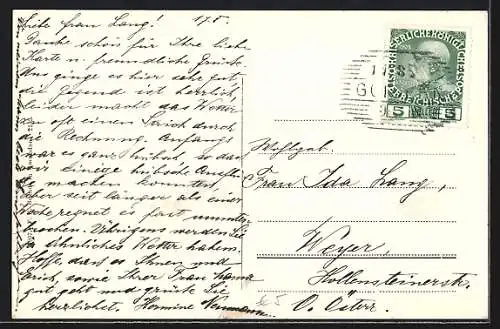 Liebe Frau Lang! 17/8.
Danke schön für Ihre liebe
Karte u. freundliche Grüße.
Uns ginge es hier sehr gut
die Gegend ist herrlich
leider macht das Wetter
uns oft einen Strich durch
die Rechnung. Anfangs
war es ganz hübsch, so dass
wir einige hübsche Ausflüge
machen konnten,
aber seit länger als einer
Woche regnet es fast ununter-
brochen. Übrigens werden Sie
ja ähnliches Wetter haben.
Hoffe, dass es Ihnen und
Erich, sowie Ihrer Frau Mama
gut geht und grüßt Sie
herzlichst Hermine Neumann
Wohlgeb.
Frau Ida Lang,
Weyer,
Hollensteinerstr.
O. Österr.
5 5